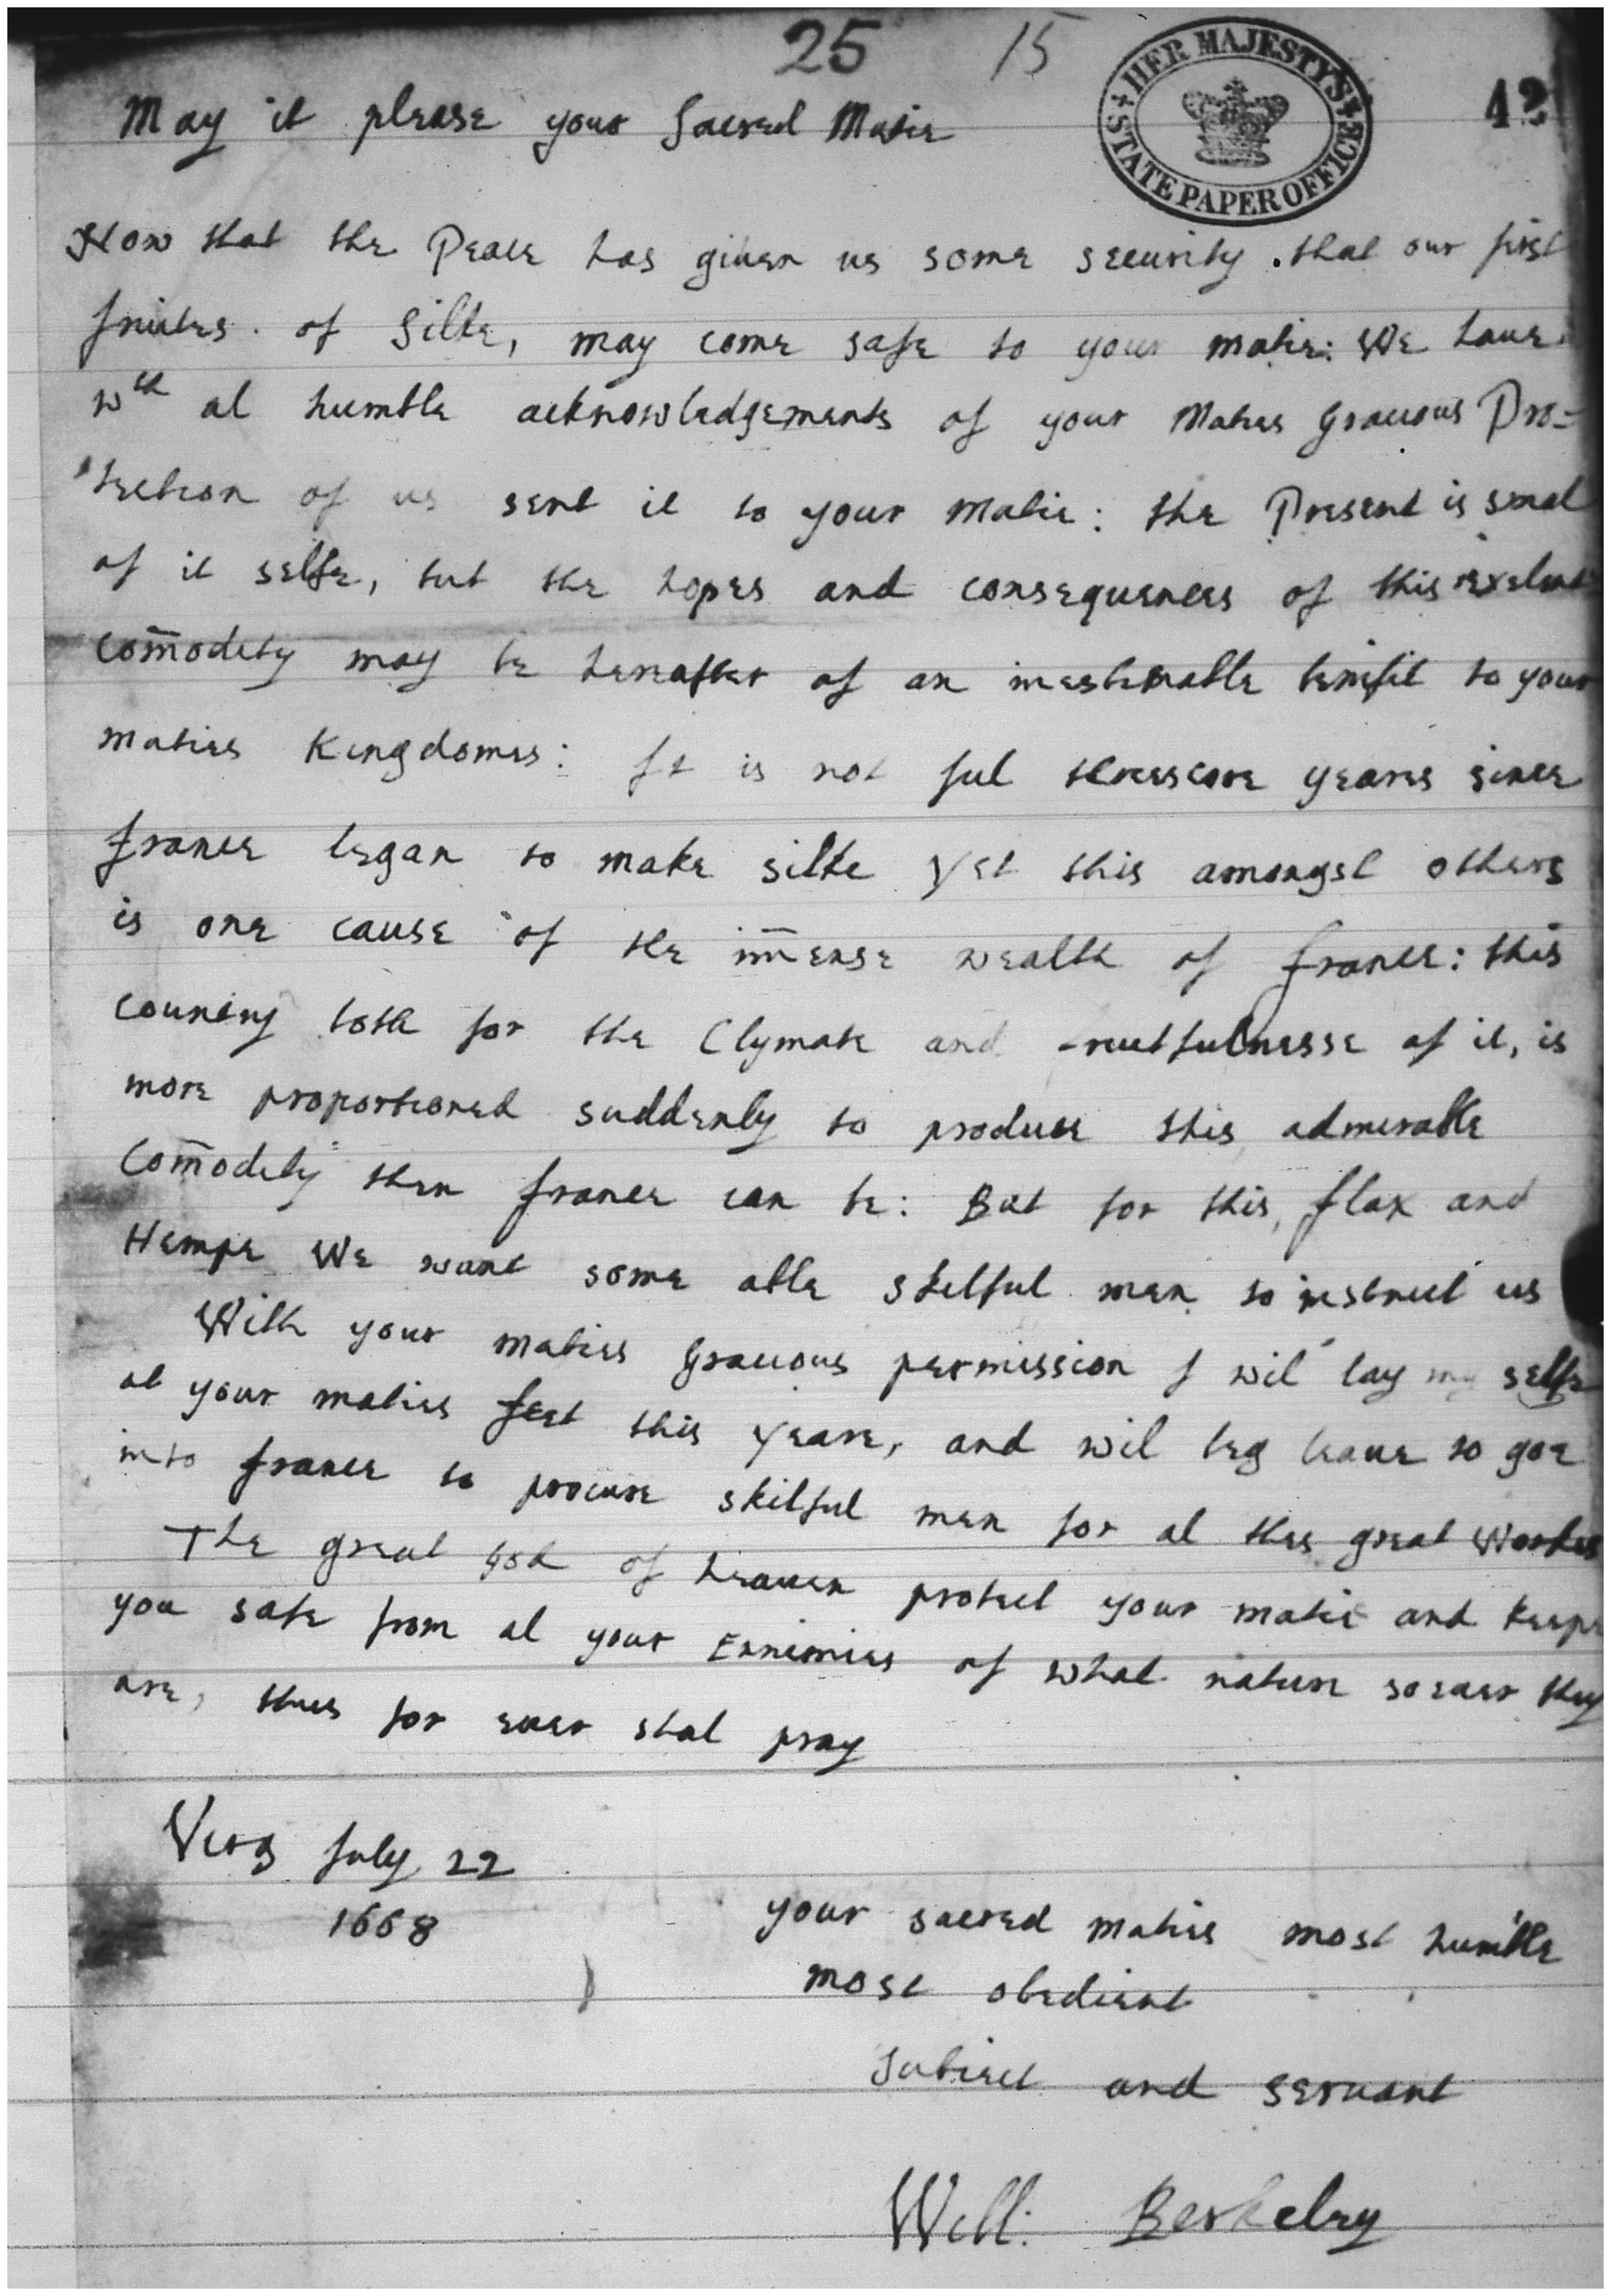 25 15
HER MAJESTY'S
STATE PAPER OFFICE
42
May it please your Sacred Matie
Now that the Peace has given us some security . that our first
fruites . of Silke, may come safe to your matie: We have
wth al humble acknowledgements of your Maties Gracious Pro=
tection of us sent it to your Matie: the Present is smal
of it selfe, but the hopes and consequences of this exelent
Com̄odety may be hereafter of an inestemable benifit to your
maties Kingdomes: It is not ful threescore yeares since
france began to make silke yet this amongst others
is one cause of the im̄ense wealth of france: this
country both for the Clymate and fruitfulnesse of it, is
more proportioned suddenly to produce this admerable
Com̄odety then france can be: But for this, flax and
Hempe We want some able skelful men to instruct us
With your maties Gracious permission I wil lay my selfe
at your maties feet this yeare, and wil beg leave to goe
into france to procure skilful men for al thes great Workes
The great God of heaven protect your matie and keepe
you safe from al your Ennimies of what nature soever they
are, thus for ever shal pray
Virg July 22
1668
your sacred maties most humble
most obedient
Subiect and servant
Will: Berkeley